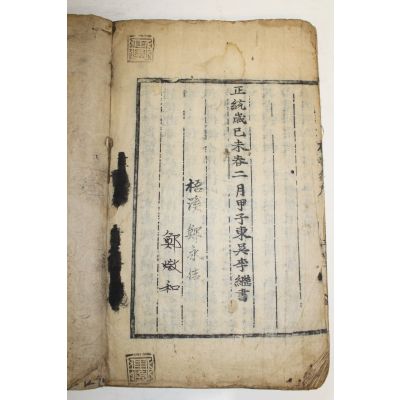 正統歲己未春二月甲子東吳李繼書
梧溪鄭永佶
鄭墩和